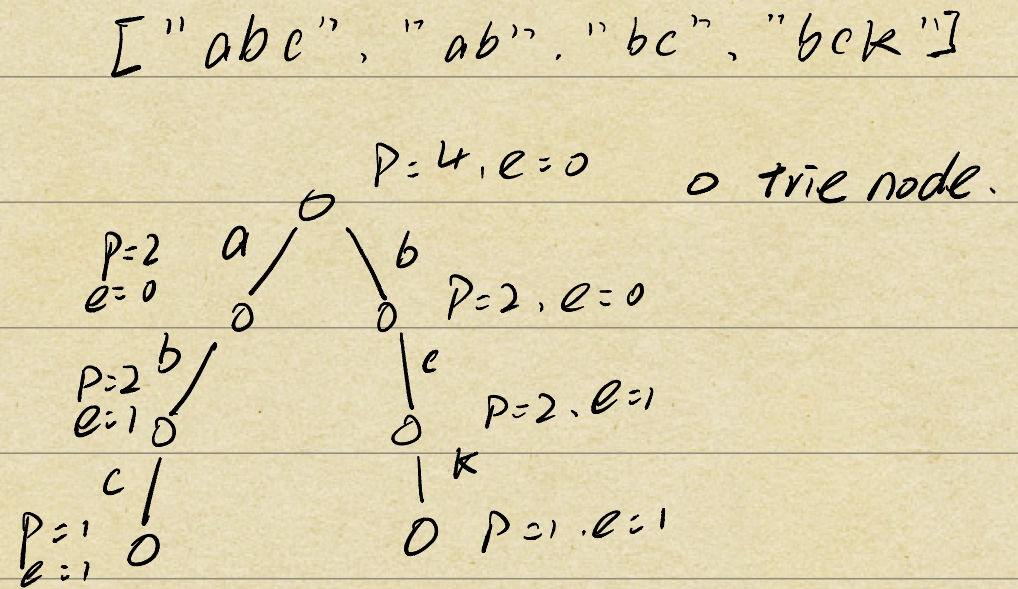 ["abc", "ab", "bc", "bck"]
P=4, e=0
o trie node.
a
b
P=2
e=0
P=2, e=0
b
c
P=2
e=1
P=2, e=1
c
k
P=1
e=1
P=1, e=1